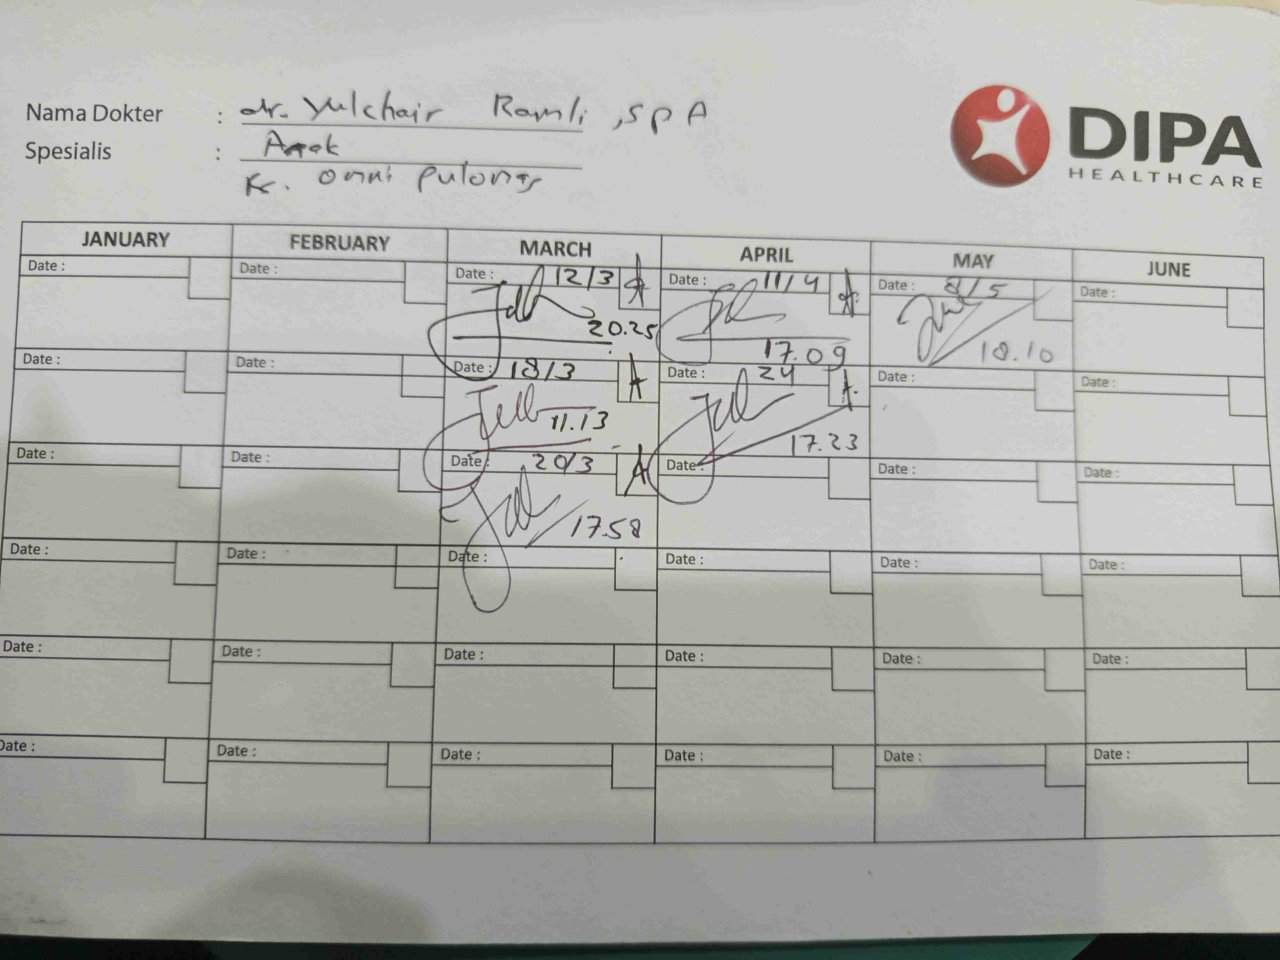 Nama Dokter : dr. Yulchair Ramli, SpA
Spesialis : Anak
Omni Pulomas
DIPA
HEALTHCARE
JANUARY FEBRUARY MARCH APRIL MAY JUNE
Date : Date : Date : 12/3 A Date : 11/4 A Date : 8/5 Date :
20.25 17.09 18.10
Date : Date : Date : 18/3 A Date : 24 A Date : Date :
11.13 17.23
Date : Date : Date : 20/3 A Date : Date : Date :
17.58
Date : Date : Date : Date : Date : Date :
Date : Date : Date : Date : Date : Date :
Date : Date : Date : Date : Date : Date :